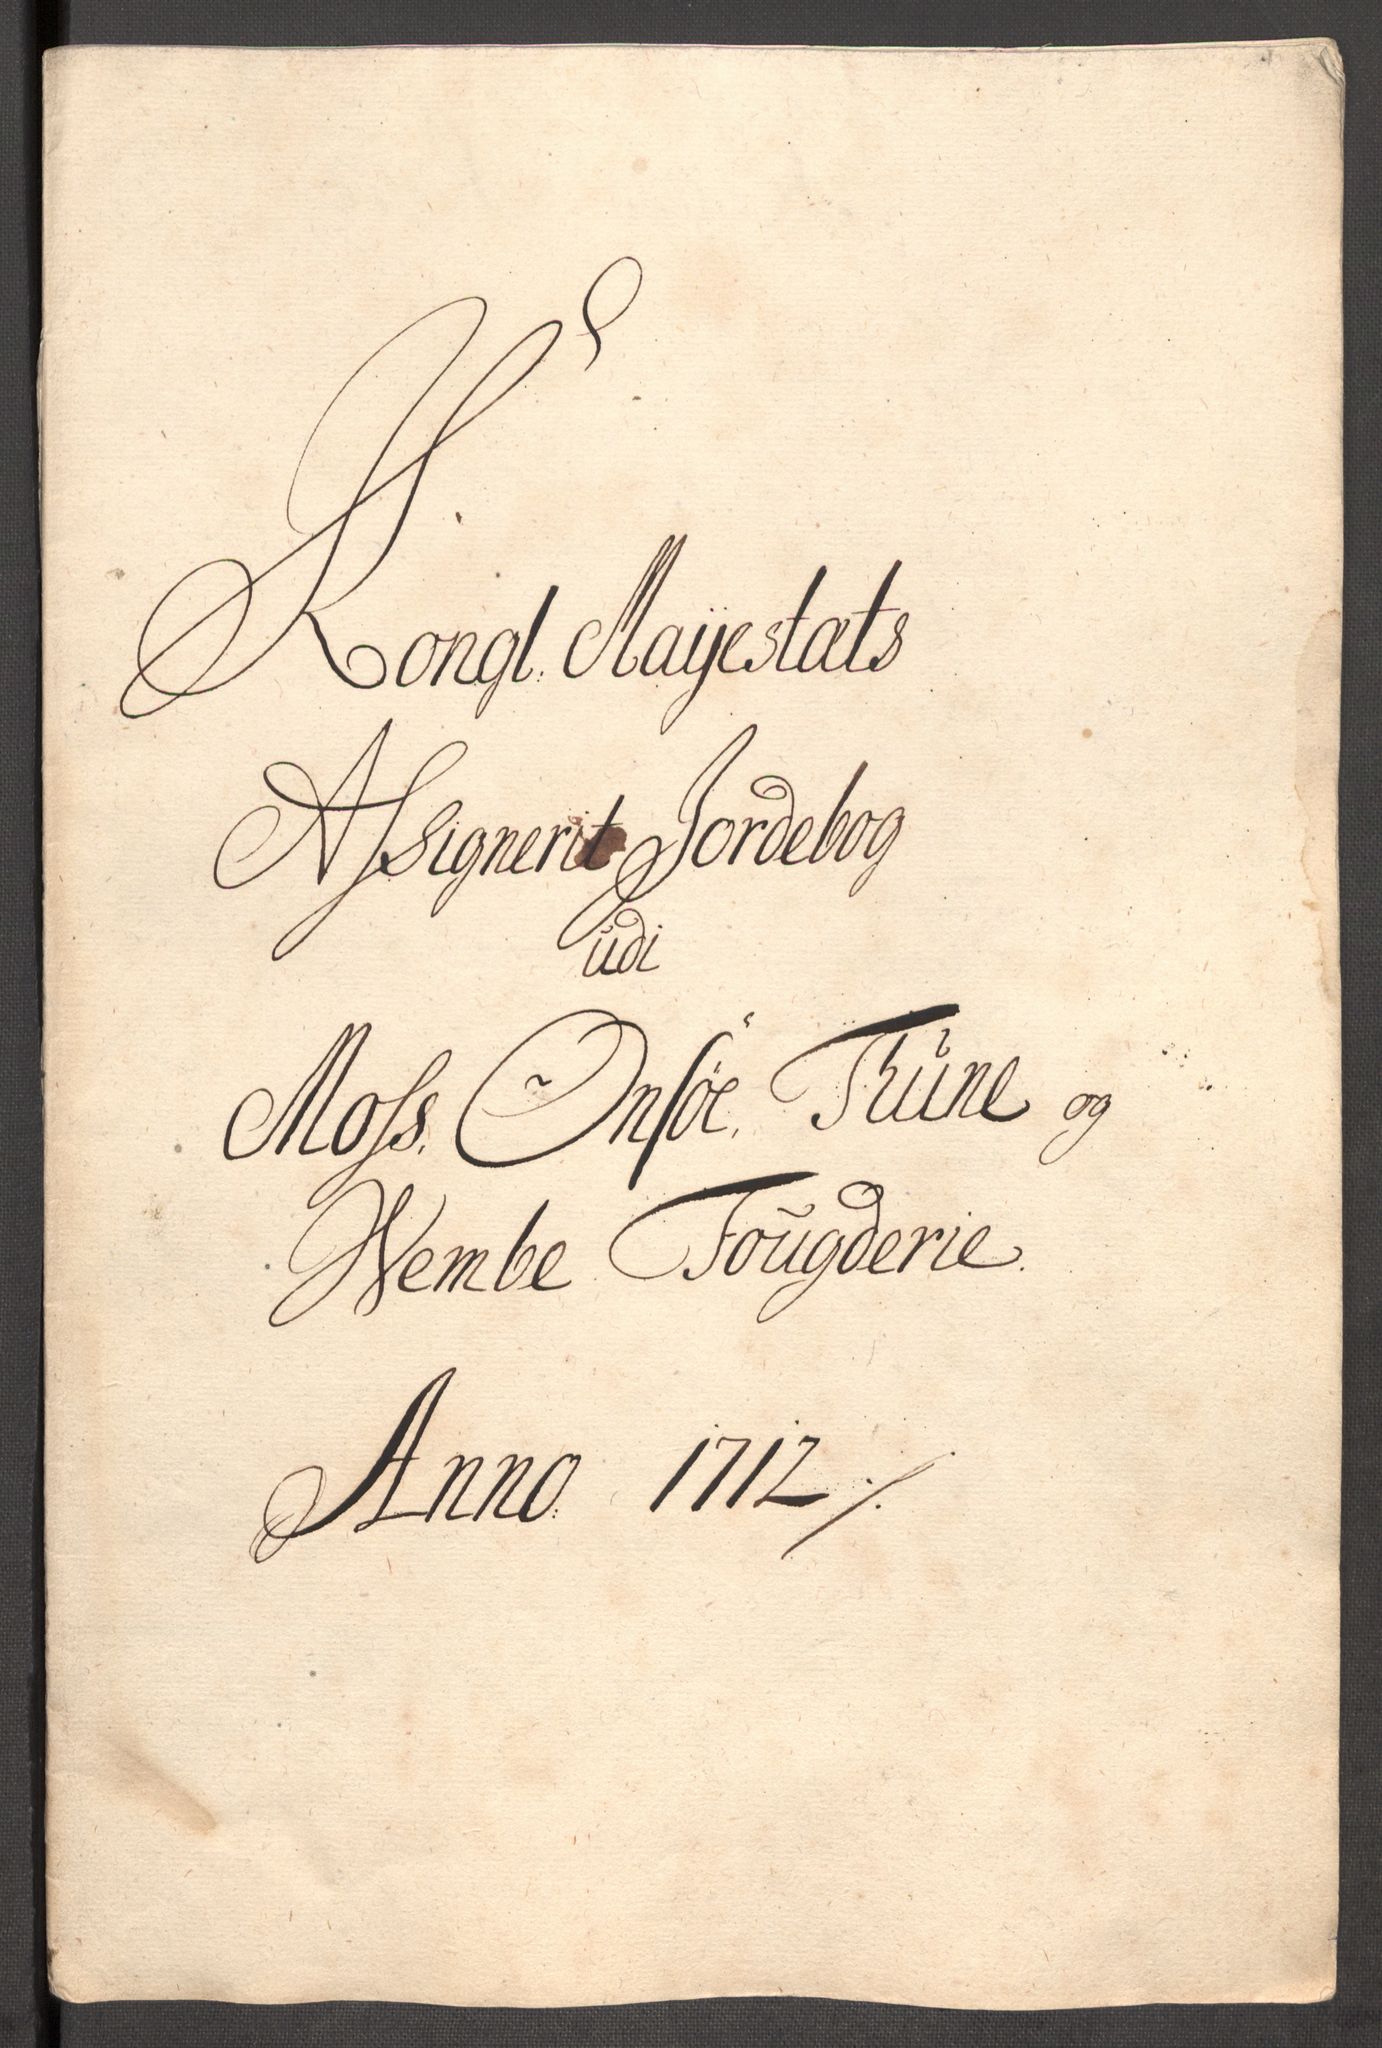 Kongl. Mayestæts
Assignerit Jordebog
udi
Moss. Onsöe. Thune og
Wembe Fougderie.
Anno. 1712 ./.